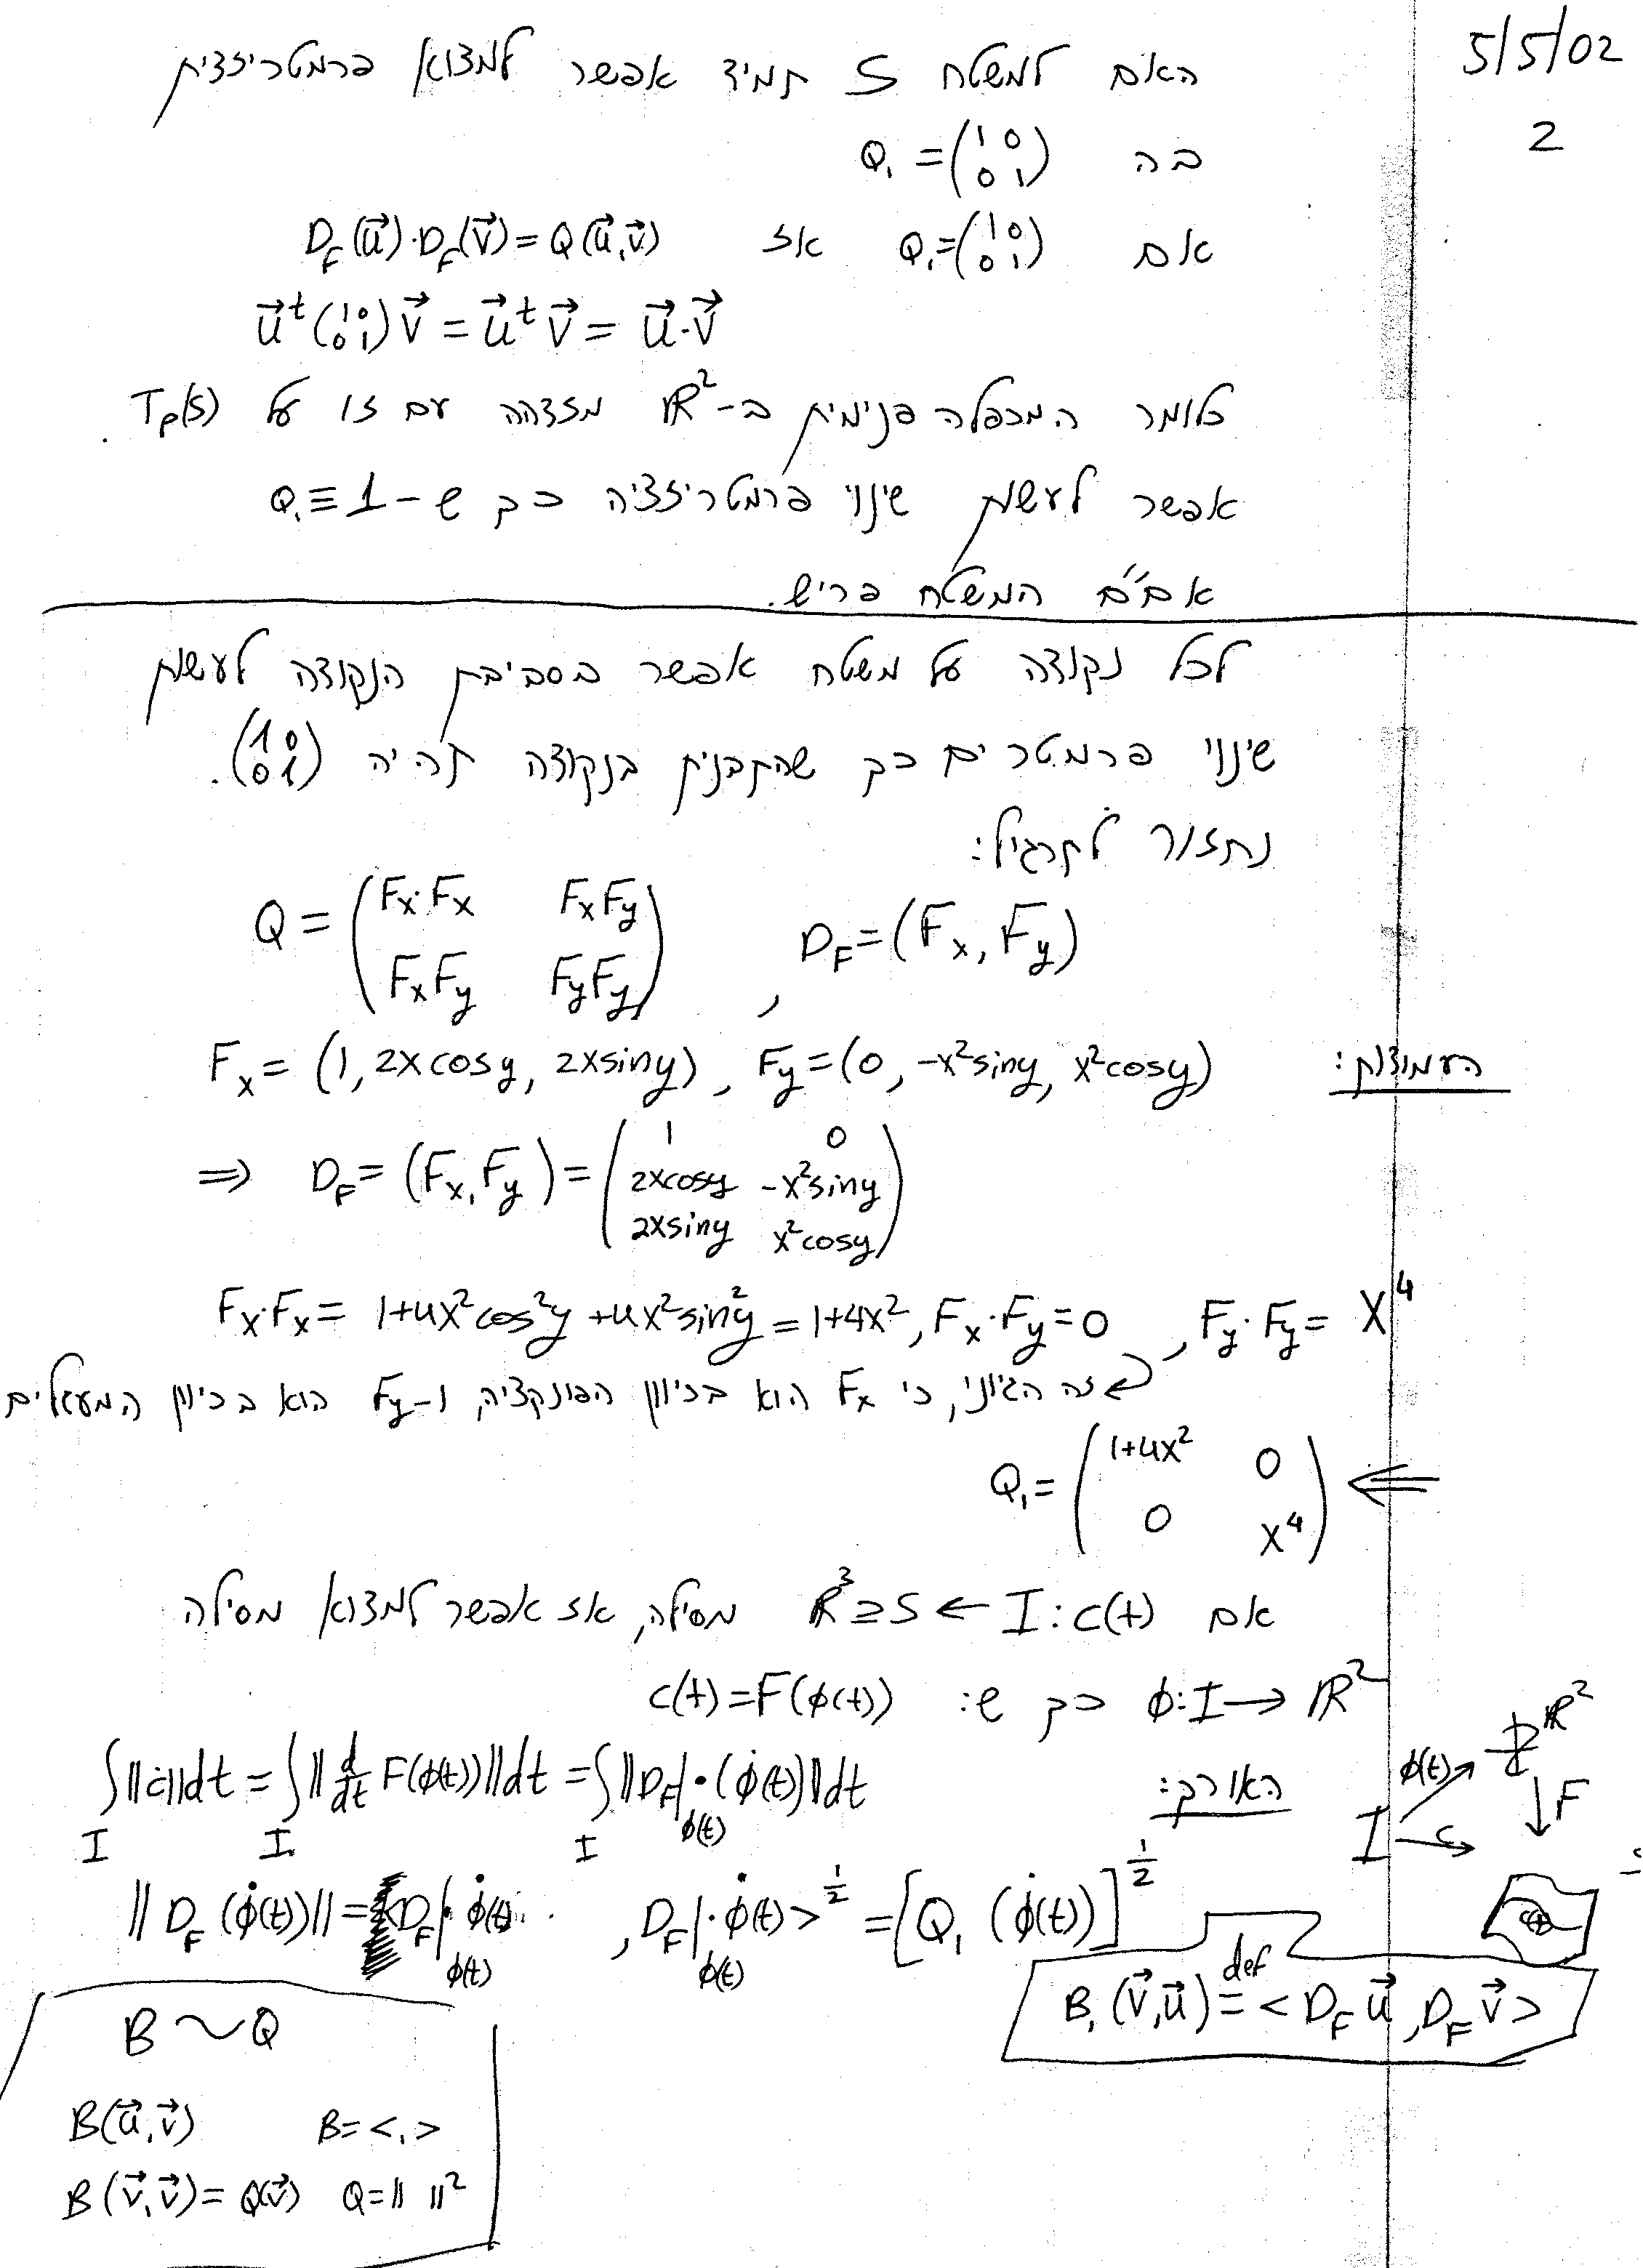 5/5/02
2
האם למשטח S תמיד אפשר למצוא פרמטריזציית
בה Q₁ = (1 0 ; 0 1)
אם Q₁ = (1 0 ; 0 1) אז D_F(u⃗)·D_F(v⃗) = Q(u⃗,v⃗)
u⃗ᵗ (1 0 ; 0 1) v⃗ = u⃗ᵗ v⃗ = u⃗·v⃗
כלומר המכפלה פנימית ב-ℝ² מזדהה עם זו על T_P(S).
אפשר לעשות שינוי פרמטריזציה כך ש- Q₁ ≡ 1
אם"ם המשטח פריש.
לכל נקודה על משטח אפשר בסביבת הנקודה לעשות
שינוי פרמטרים כך שהתבנית בנקודה תהיה (1 0 ; 0 1).
נחזור לתרגיל:
D_F = (F_x, F_y) , Q = (F_x·F_x F_xF_y ; F_xF_y F_yF_y)
העמודות: F_x = (1, 2xcosy, 2xsiny), F_y = (0, -x²siny, x²cosy)
⇒ D_F = (F_x, F_y) = (1 0 ; 2xcosy -x²siny ; 2xsiny x²cosy)
F_x·F_x = 1+4x²cos²y + 4x²sin²y = 1+4x², F_x·F_y = 0, F_y·F_y = x⁴
זה הגיוני, כי F_x הוא בכיוון הפונקציה, ו-F_y הוא בכיוון המעגלים
⇐ Q₁ = (1+4x² 0 ; 0 x⁴)
אם ℝ³ ⊇ S ← I : c(t) מסילה, אז אפשר למצוא מסילה
φ: I → ℝ² כך ש: c(t) = F(φ(t))
האורך: ∫_I ||ċ||dt = ∫_I ||d/dt F(φ(t))||dt = ∫_I ||D_F|_φ(t) · (φ̇(t))||dt
φ(t) ℝ²
F
I c
c(t)
||D_F (φ̇(t))|| = <D_F|_φ(t) · φ̇(t), D_F|_φ(t) · φ̇(t)>^½ = [Q₁ (φ̇(t))]^½
B₁(v⃗,u⃗) =^def <D_F u⃗, D_F v⃗>
B ~ Q
B(u⃗,v⃗) B = <,>
B(v⃗,v⃗) = Q(v⃗) Q = || ||²